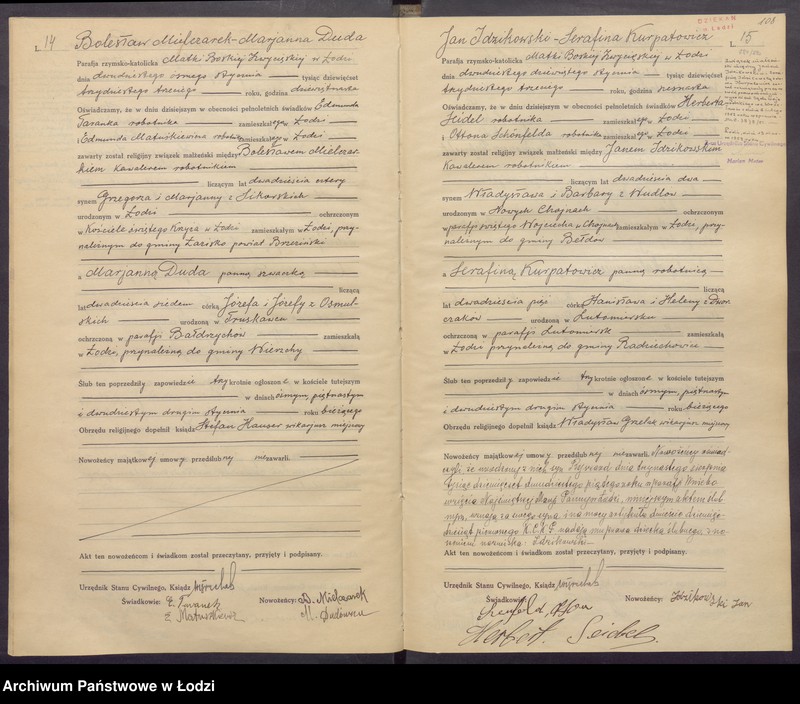 L 14
Bolesław Mielczarek-Marjanna Duda
Parafja rzymsko-katolicka Matki Boskiej Zwycięskiej w Łodzi
dnia dwudziestego ósmego stycznia tysiąc dziewięćset
trzydziestego trzeciego roku, godzina dziewiętnasta
Oświadczamy, że w dniu dzisiejszym w obecności pełnoletnich świadków Edmunda
Taranka robotnika zamieszkałego w Łodzi
i Edmunda Matuśkiewicza robotnika zamieszkałego w Łodzi
zawarty został religijny związek małżeński między Bolesławem Mielczar-
kiem kawalerem robotnikiem
liczącym lat dwadzieścia cztery
synem Grzegorza i Marjanny z Sikorskich
urodzonym w Łodzi ochrzczonym
w Kościele świętego Krzyża w Łodzi zamieszkałym w Łodzi, przy-
należnym do gminy Łazisko powiat Brzeziński
a Marjanną Duda panną szwaczką
liczącą
lat dwadzieścia siedem córką Józefa i Józefy z Osmul-
skich urodzoną w Truskawcu
ochrzczoną w parafji Bałdrzychów zamieszkałą
w Łodzi, przynależną do gminy Wierzchy
Ślub ten poprzedziły zapowiedzie trzykrotnie ogłoszone w kościele tutejszym
w dniach ósmym, piętnastym
i dwudziestym drugim stycznia roku bieżącego
Obrzędu religijnego dopełnił ksiądz Stefan Hauser wikarjusz miejscowy
Nowożeńcy majątkowej umowy przedślubnej nie zawarli.
Akt ten nowożeńcom i świadkom został przeczytany, przyjęty i podpisany.
Urzędnik Stanu Cywilnego, Ksiądz
Świadkowie: E. Taranek Nowożeńcy: B. Mielczarek
E. Matuśkiewicz M. Dudówna
108
DZIEKAN
w Łodzi
L 15
Jan Idzikowski-Serafina Kurpatowicz
Parafja rzymsko-katolicka Matki Boskiej Zwycięskiej w Łodzi
dnia dwudziestego dziewiątego stycznia tysiąc dziewięćset
trzydziestego trzeciego roku, godzina szesnasta
Oświadczamy, że w dniu dzisiejszym w obecności pełnoletnich świadków Herberta
Seidel robotnika zamieszkałego w Łodzi
i Ottona Schönfelda robotnika zamieszkałego w Łodzi
zawarty został religijny związek małżeński między Janem Idzikowskim
kawalerem robotnikiem
liczącym lat dwadzieścia dwa
synem Władysława i Barbary z Mudlow
urodzonym w Nowych Chojnach ochrzczonym
w parafji świętego Wojciecha w Chojnach zamieszkałym w Łodzi, przy-
należnym do gminy Bełdów
a Serafiną Kurpatowicz panną robotnicą
liczącą
lat dwadzieścia pięć córką Stanisława i Heleny z Dwor-
czaków urodzoną w Lutomiersku
ochrzczoną w parafji Lutomiersk zamieszkałą
w Łodzi przynależną do gminy Radziechowice
Ślub ten poprzedziły zapowiedzie trzykrotnie ogłoszone w kościele tutejszym
w dniach ósmym, piętnastym
i dwudziestym drugim stycznia roku bieżącego
Obrzędu religijnego dopełnił ksiądz Władysław Grzelak wikarjusz miejscowy
Nowożeńcy majątkowej umowy przedślubnej nie zawarli. Nowożeńcy oświad-
czyli, że urodzony z nich syn dnia trzynastego sierpnia
tysiąc dziewięćset dwudziestego piątego roku w parafji Wniebo-
wzięcia Najświętszej Marji Panny w Łodzi, niniejszym aktem ślub-
nym, uznają za swego syna i na mocy artykułu dwieście dziewięć-
dziesiąt pierwszego K.C.K.P. nadają mu prawa dziecka ślubnego z na-
daniem nazwiska: Idzikowski.
Akt ten nowożeńcom i świadkom został przeczytany, przyjęty i podpisany.
Urzędnik Stanu Cywilnego, Ksiądz
Świadkowie: Nowożeńcy: Idzikow-
ski Jan
Herbert Seidel.
Urzędnik Stanu Cywilnego
Marian Matus
Archiwum Państwowe w Łodzi